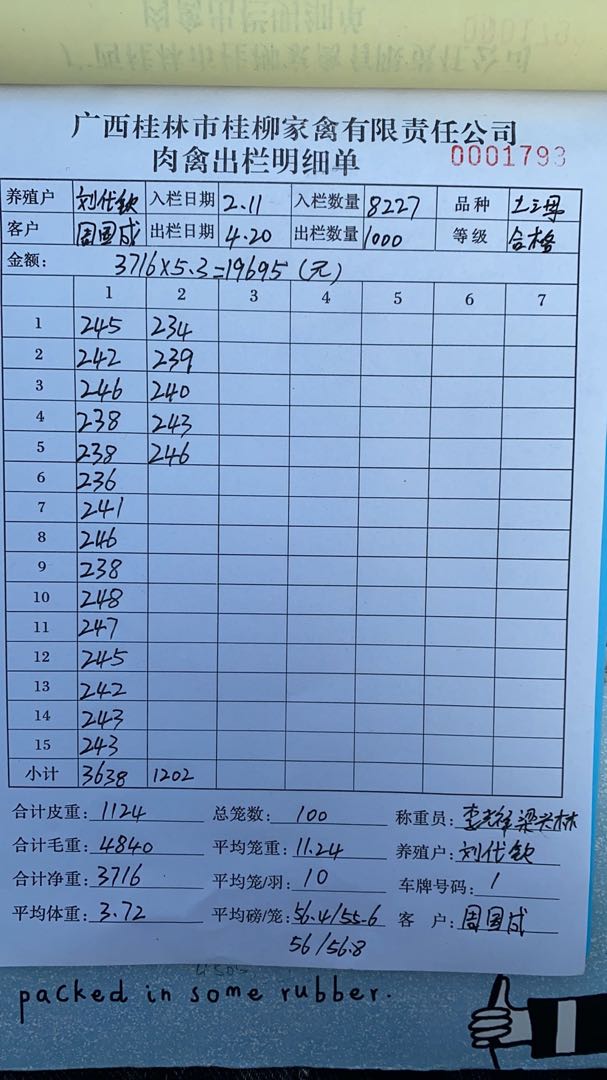 广西桂林市桂柳家禽有限责任公司
肉禽出栏明细单 0001793
养殖户 刘代钦 入栏日期 2.11 入栏数量 8227 品种 土三母
客户 周国成 出栏日期 4.20 出栏数量 1000 等级 合格
金额: 3716×5.3=19695 (元)
1 2 3 4 5 6 7
1 245 234
2 242 239
3 246 240
4 238 243
5 238 246
6 236
7 241
8 246
9 238
10 248
11 247
12 245
13 242
14 243
15 243
小计 3638 1202
合计皮重: 1124 总笼数: 100 称重员:
合计毛重: 4840 平均笼重: 11.24 养殖户: 刘代钦
合计净重: 3716 平均笼/羽: 10 车牌号码: /
平均体重: 3.72 平均磅/笼: 56.4/55.6 客 户: 周国成
56/56.8
packed in some rubber.